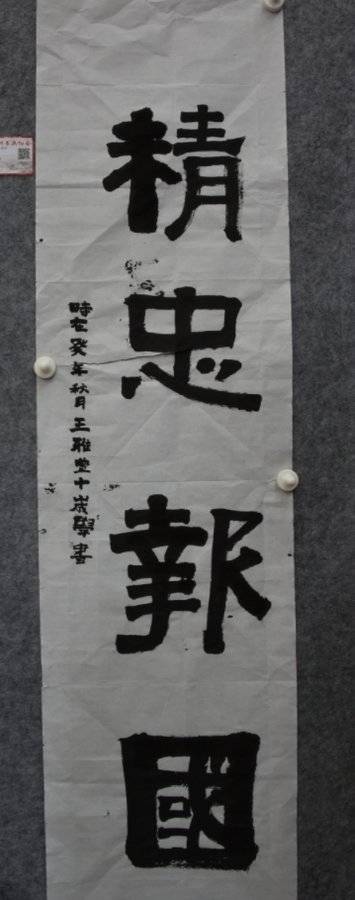 精忠報國
時在癸年秋月王雅堂十歲學書